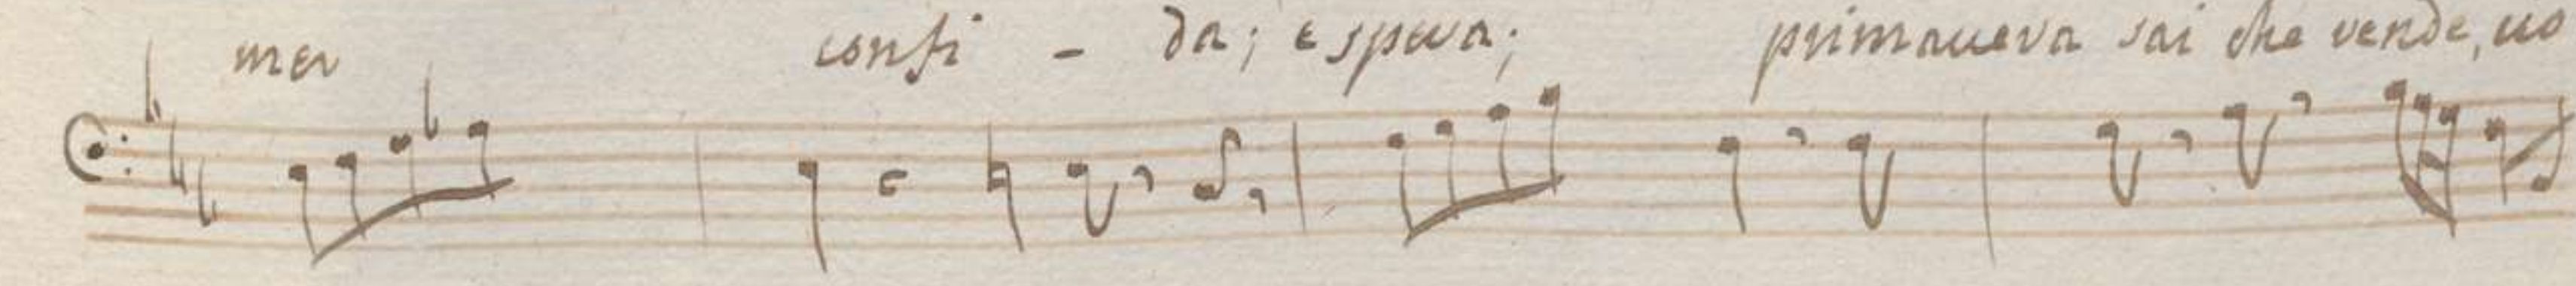 mer confi - da; e spera; primavera sai che vende, uo